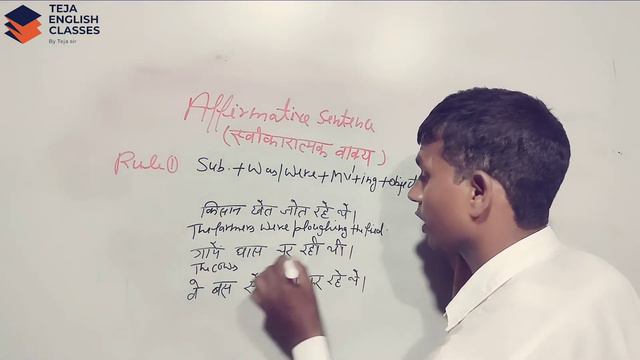 TEJA
ENGLISH
CLASSES
By Teja sir
Affirmative sentence
(स्वीकारात्मक वाक्य)
Rule ① Sub. + Was/Were + MV¹ + ing + object
किसान खेत जोत रहे थे।
The farmers were ploughing the
गायें घास चर रही थी।
The cows
वे बस रहे थे।